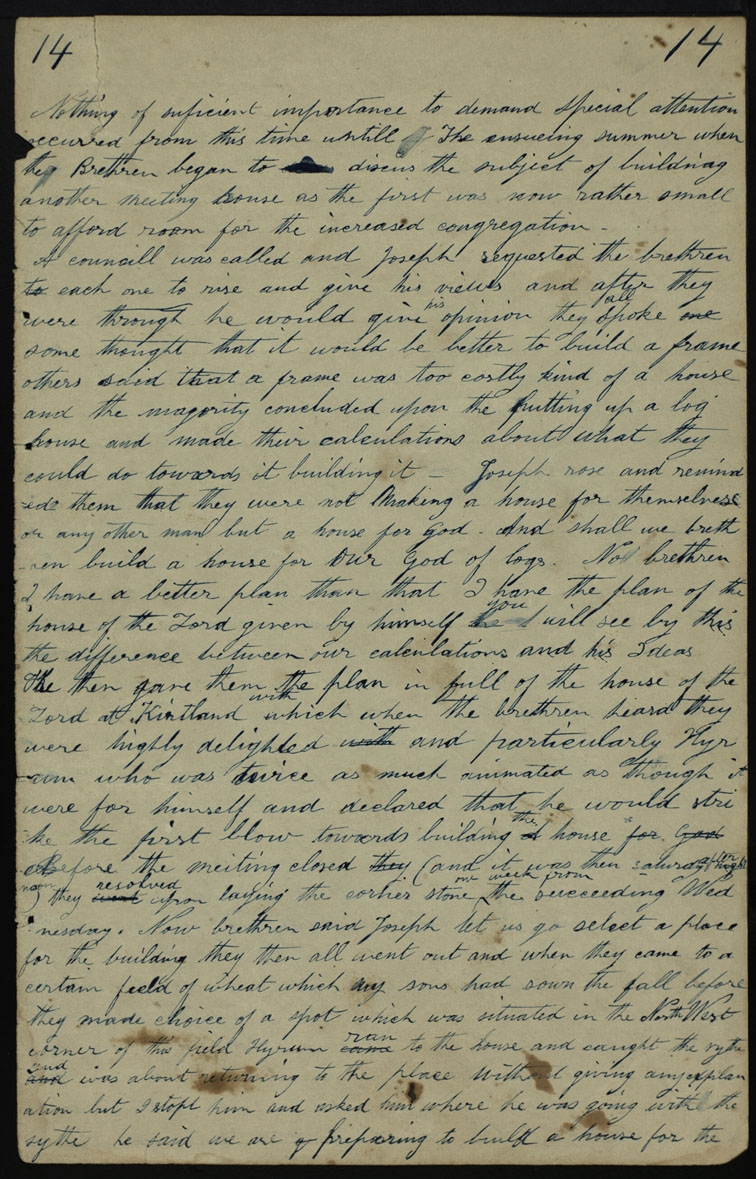 14 14
Nothing of suficient importance to demand special attention
occurred from this time untill The ensueing summer when
they Brethren began to discus the subject of buildinag
another meeting house as the first was now rather small
to afford room for the increased congregation -
A councill was called and Joseph requested the brethren
to each one to rise and give his views and after they
were through he would give his opinion they all spoke one
some thought that it would be better to build a frame
others said that a frame was too costly kind of a house
and the magority concluded upon the putting up a log
house and made their calculations about what they
could do towards it building it - Joseph rose and remind
-ede them that they were not Making a house for themselvess
or any other man but a house for God. And shall we breth
-ren build a house for Our God of logs. No brethren
I have a better plan than that I have the plan of the
house of the Lord given by himself he you will see by this
the difference between our calculations and his Ideas
He then gave them the plan in full of the house of the
Lord at Kirtland with which when the brethren heard they
were highly delighted with and particularly Hyr
-um who was twice as much animated as though it
were for himself and declared that he would stri
-ke the first blow towards building the house for God
Before the meiting closed they (and it was then saturday
noon) they went resolved upon laying the corner stone one week from the succeeding Wed
nesday. Now brethren said Joseph let us go select a place
for the building they then all went out and when they came to a
certain feeld of wheat which my sons had sown the fall before
they made choice of a spot which was situated in the North West
corner of this field Hyrum came ran to the house and caught the sythe
and and was about returning to the place without giving any explan
ation but I stopt him and asked him where he was going with the
sythe he said we are preparing to build a house for the